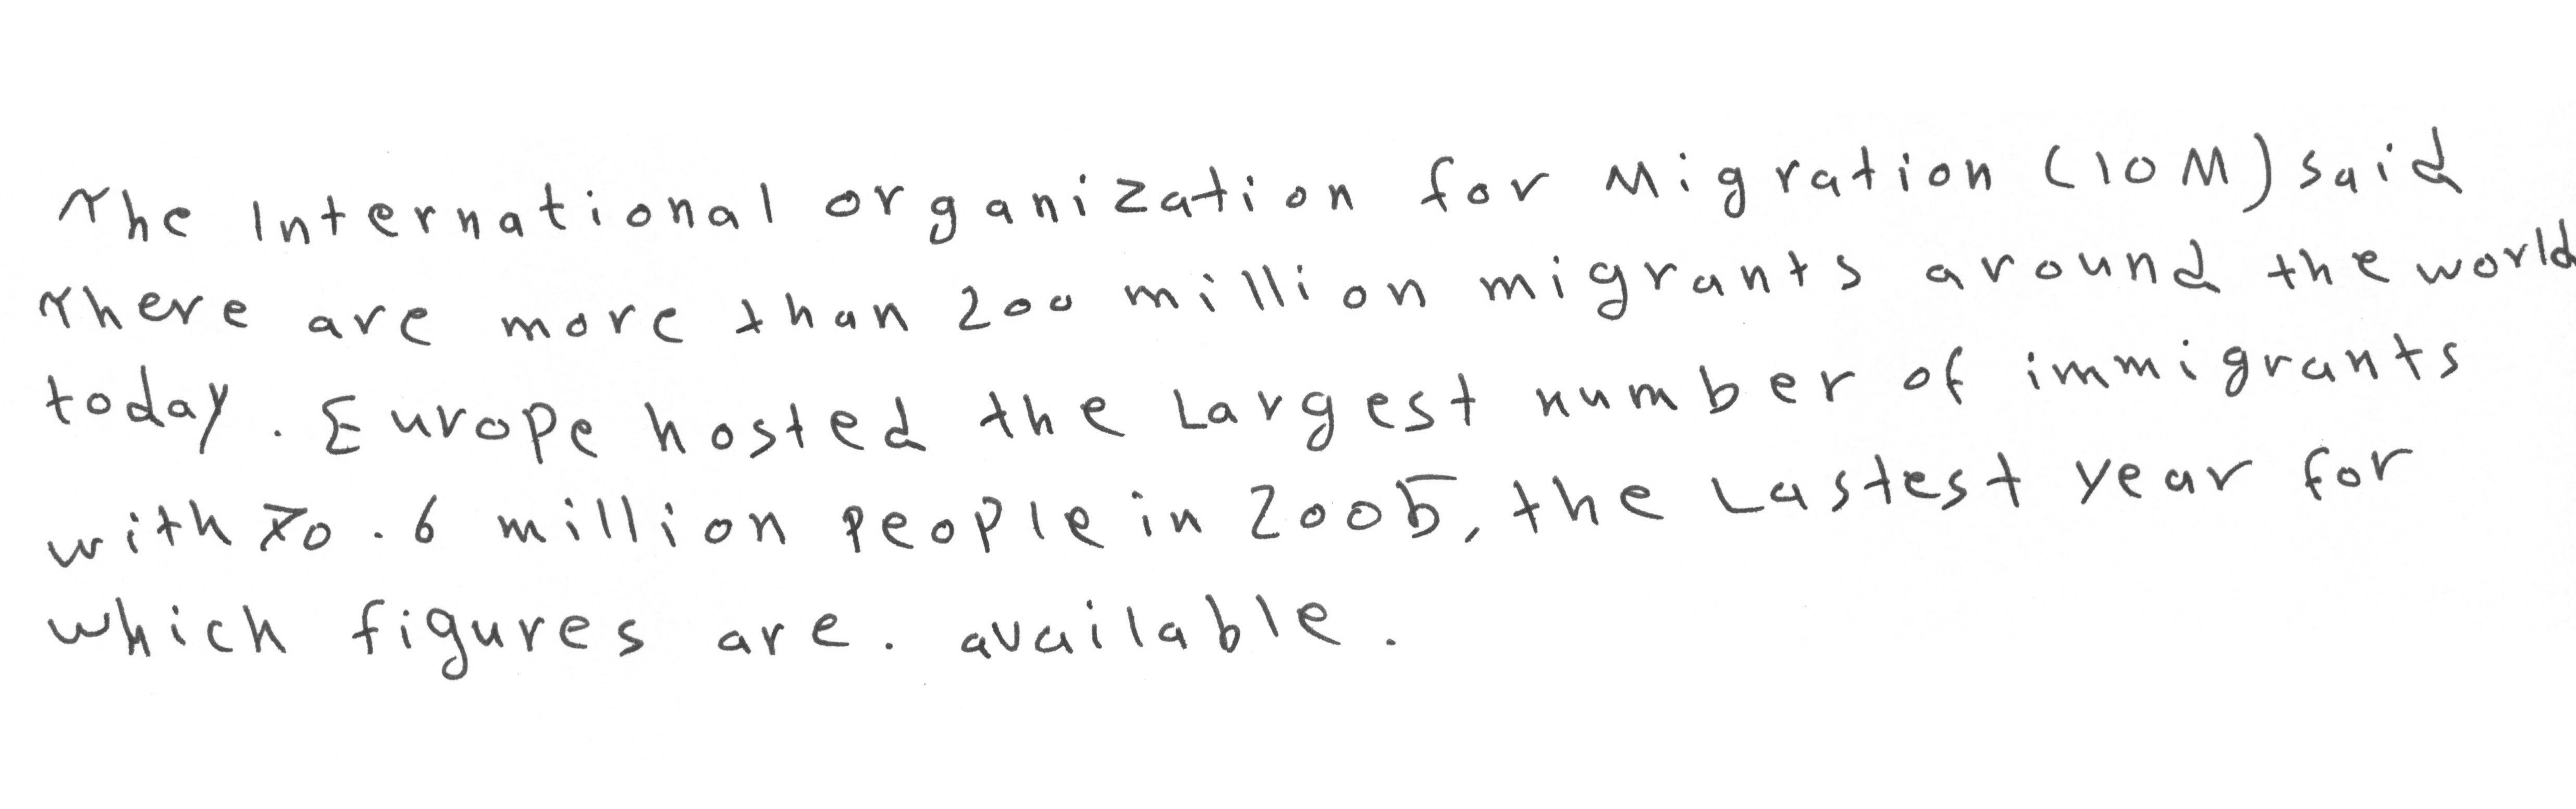 The International organization for Migration (IOM) said
There are more than 200 million migrants around the world
today. Europe hosted the Largest number of immigrants
with 70.6 million people in 2005, the Lastest year for
which figures are. available.